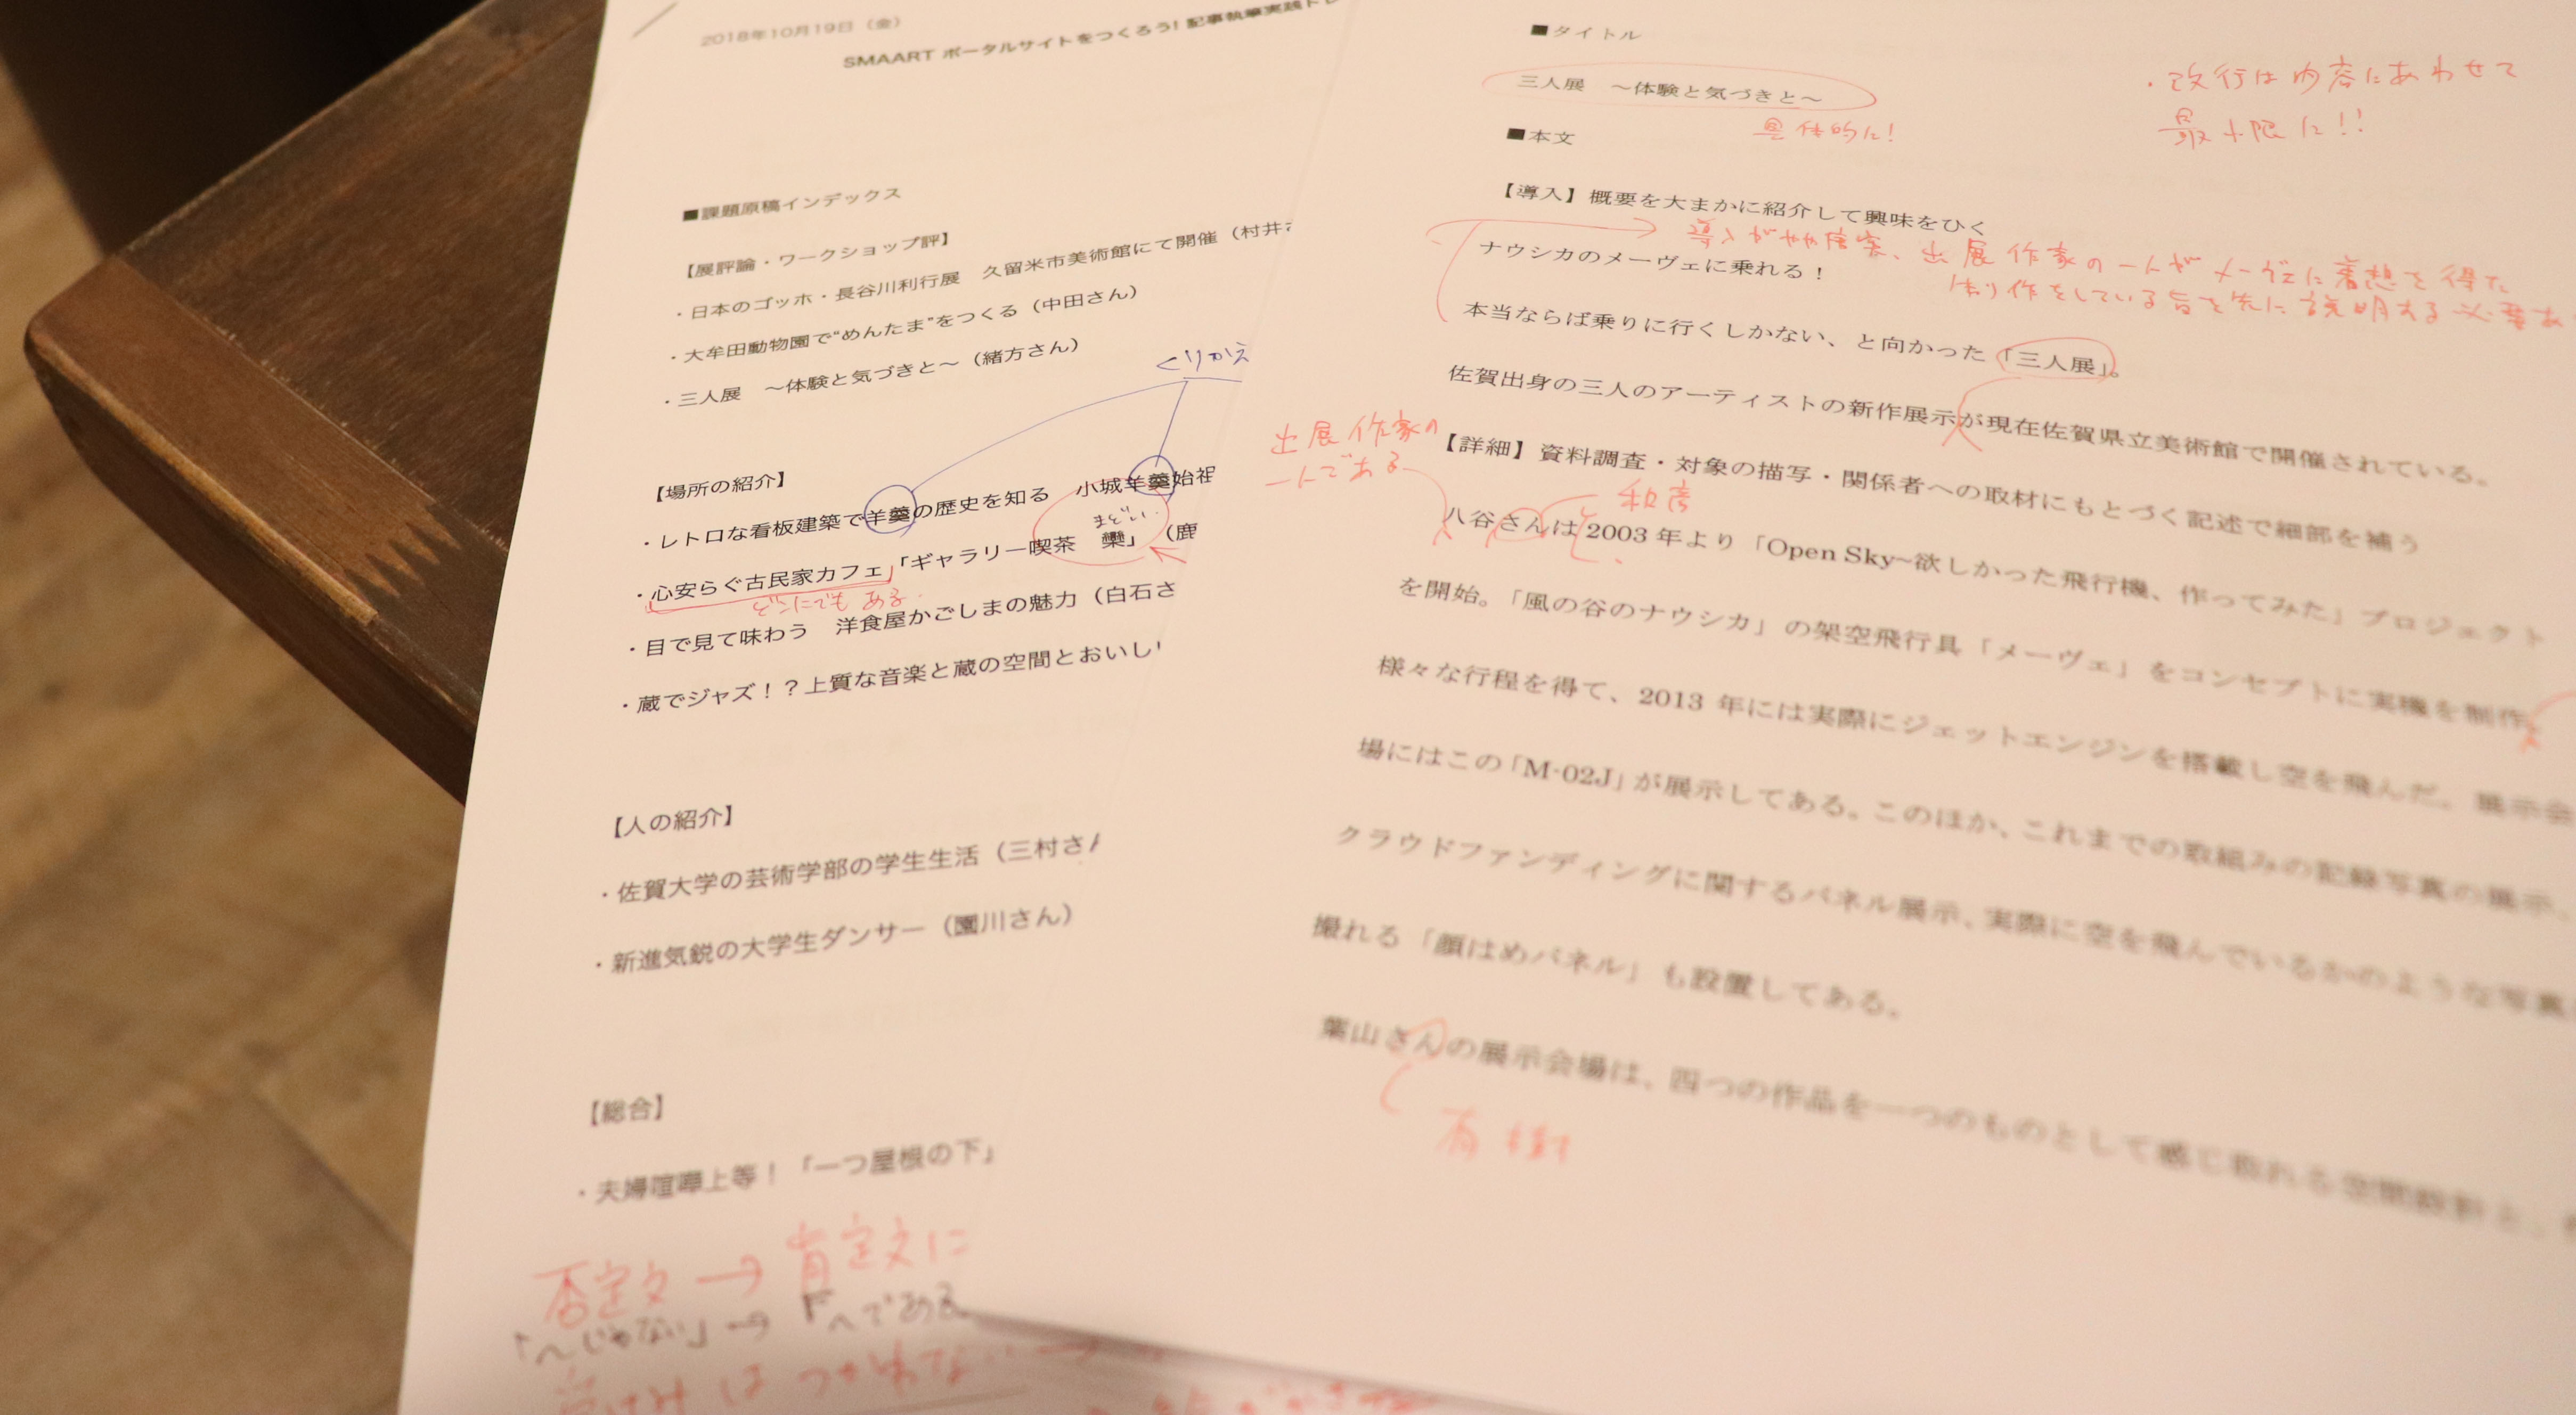 2018年10月19日（金）
SMAART ポータルサイトをつくろう! 記事執筆実践トレ
■課題原稿インデックス
【展評論・ワークショップ評】
・日本のゴッホ・長谷川利行展　久留米市美術館にて開催（村井さ
・大牟田動物園で“めんたま”をつくる（中田さん）
・三人展　～体験と気づきと～（緒方さん）
くりかえ
【場所の紹介】
・レトロな看板建築で羊羹の歴史を知る　小城羊羹始祖
まどい
・心安らぐ古民家カフェ「ギャラリー喫茶　欒」（鹿
どこにでもある
・目で見て味わう　洋食屋かごしまの魅力（白石さ
・蔵でジャズ！？上質な音楽と蔵の空間とおいし
【人の紹介】
・佐賀大学の芸術学部の学生生活（三村さん
・新進気鋭の大学生ダンサー（園川さん）
【総合】
・夫婦喧嘩上等！「一つ屋根の下」
否定文→肯定文に
「～じゃない」→「～である
受けみはつかわない
■タイトル
三人展　～体験と気づきと～
具体的に!
・改行は内容にあわせて
最小限に!!
■本文
【導入】概要を大まかに紹介して興味をひく
導入がやや唐突、出展作家の一人がメーヴェに着想を得た
制作をしている旨を先に説明する必要あ
ナウシカのメーヴェに乗れる！
本当ならば乗りに行くしかない、と向かった「三人展」。
佐賀出身の三人のアーティストの新作展示が現在佐賀県立美術館で開催されている。
【詳細】資料調査・対象の描写・関係者への取材にもとづく記述で細部を補う
出展作家の
一人である
和彦
八谷さんは 2003 年より「Open Sky~欲しかった飛行機、作ってみた」プロジェクト
を開始。「風の谷のナウシカ」の架空飛行具「メーヴェ」をコンセプトに実機を制作。
様々な行程を得て、2013 年には実際にジェットエンジンを搭載し空を飛んだ。展示会
場にはこの「M-02J」が展示してある。このほか、これまでの取組みの記録写真の展示、
クラウドファンディングに関するパネル展示、実際に空を飛んでいるかのような写真
撮れる「顔はめパネル」も設置してある。
葉山さんの展示会場は、四つの作品を一つのものとして感じ取れる空間
有樹